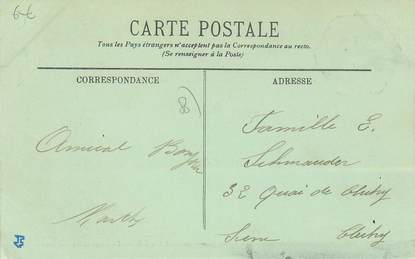 6€
CARTE POSTALE
Tous les Pays étrangers n'acceptent pas la Correspondance au recto.
(Se renseigner à la Poste)
CORRESPONDANCE
ADRESSE
8
Amical Bonjour
Famille E.
Schmauder
32 Quai de Clichy
Seine Clichy